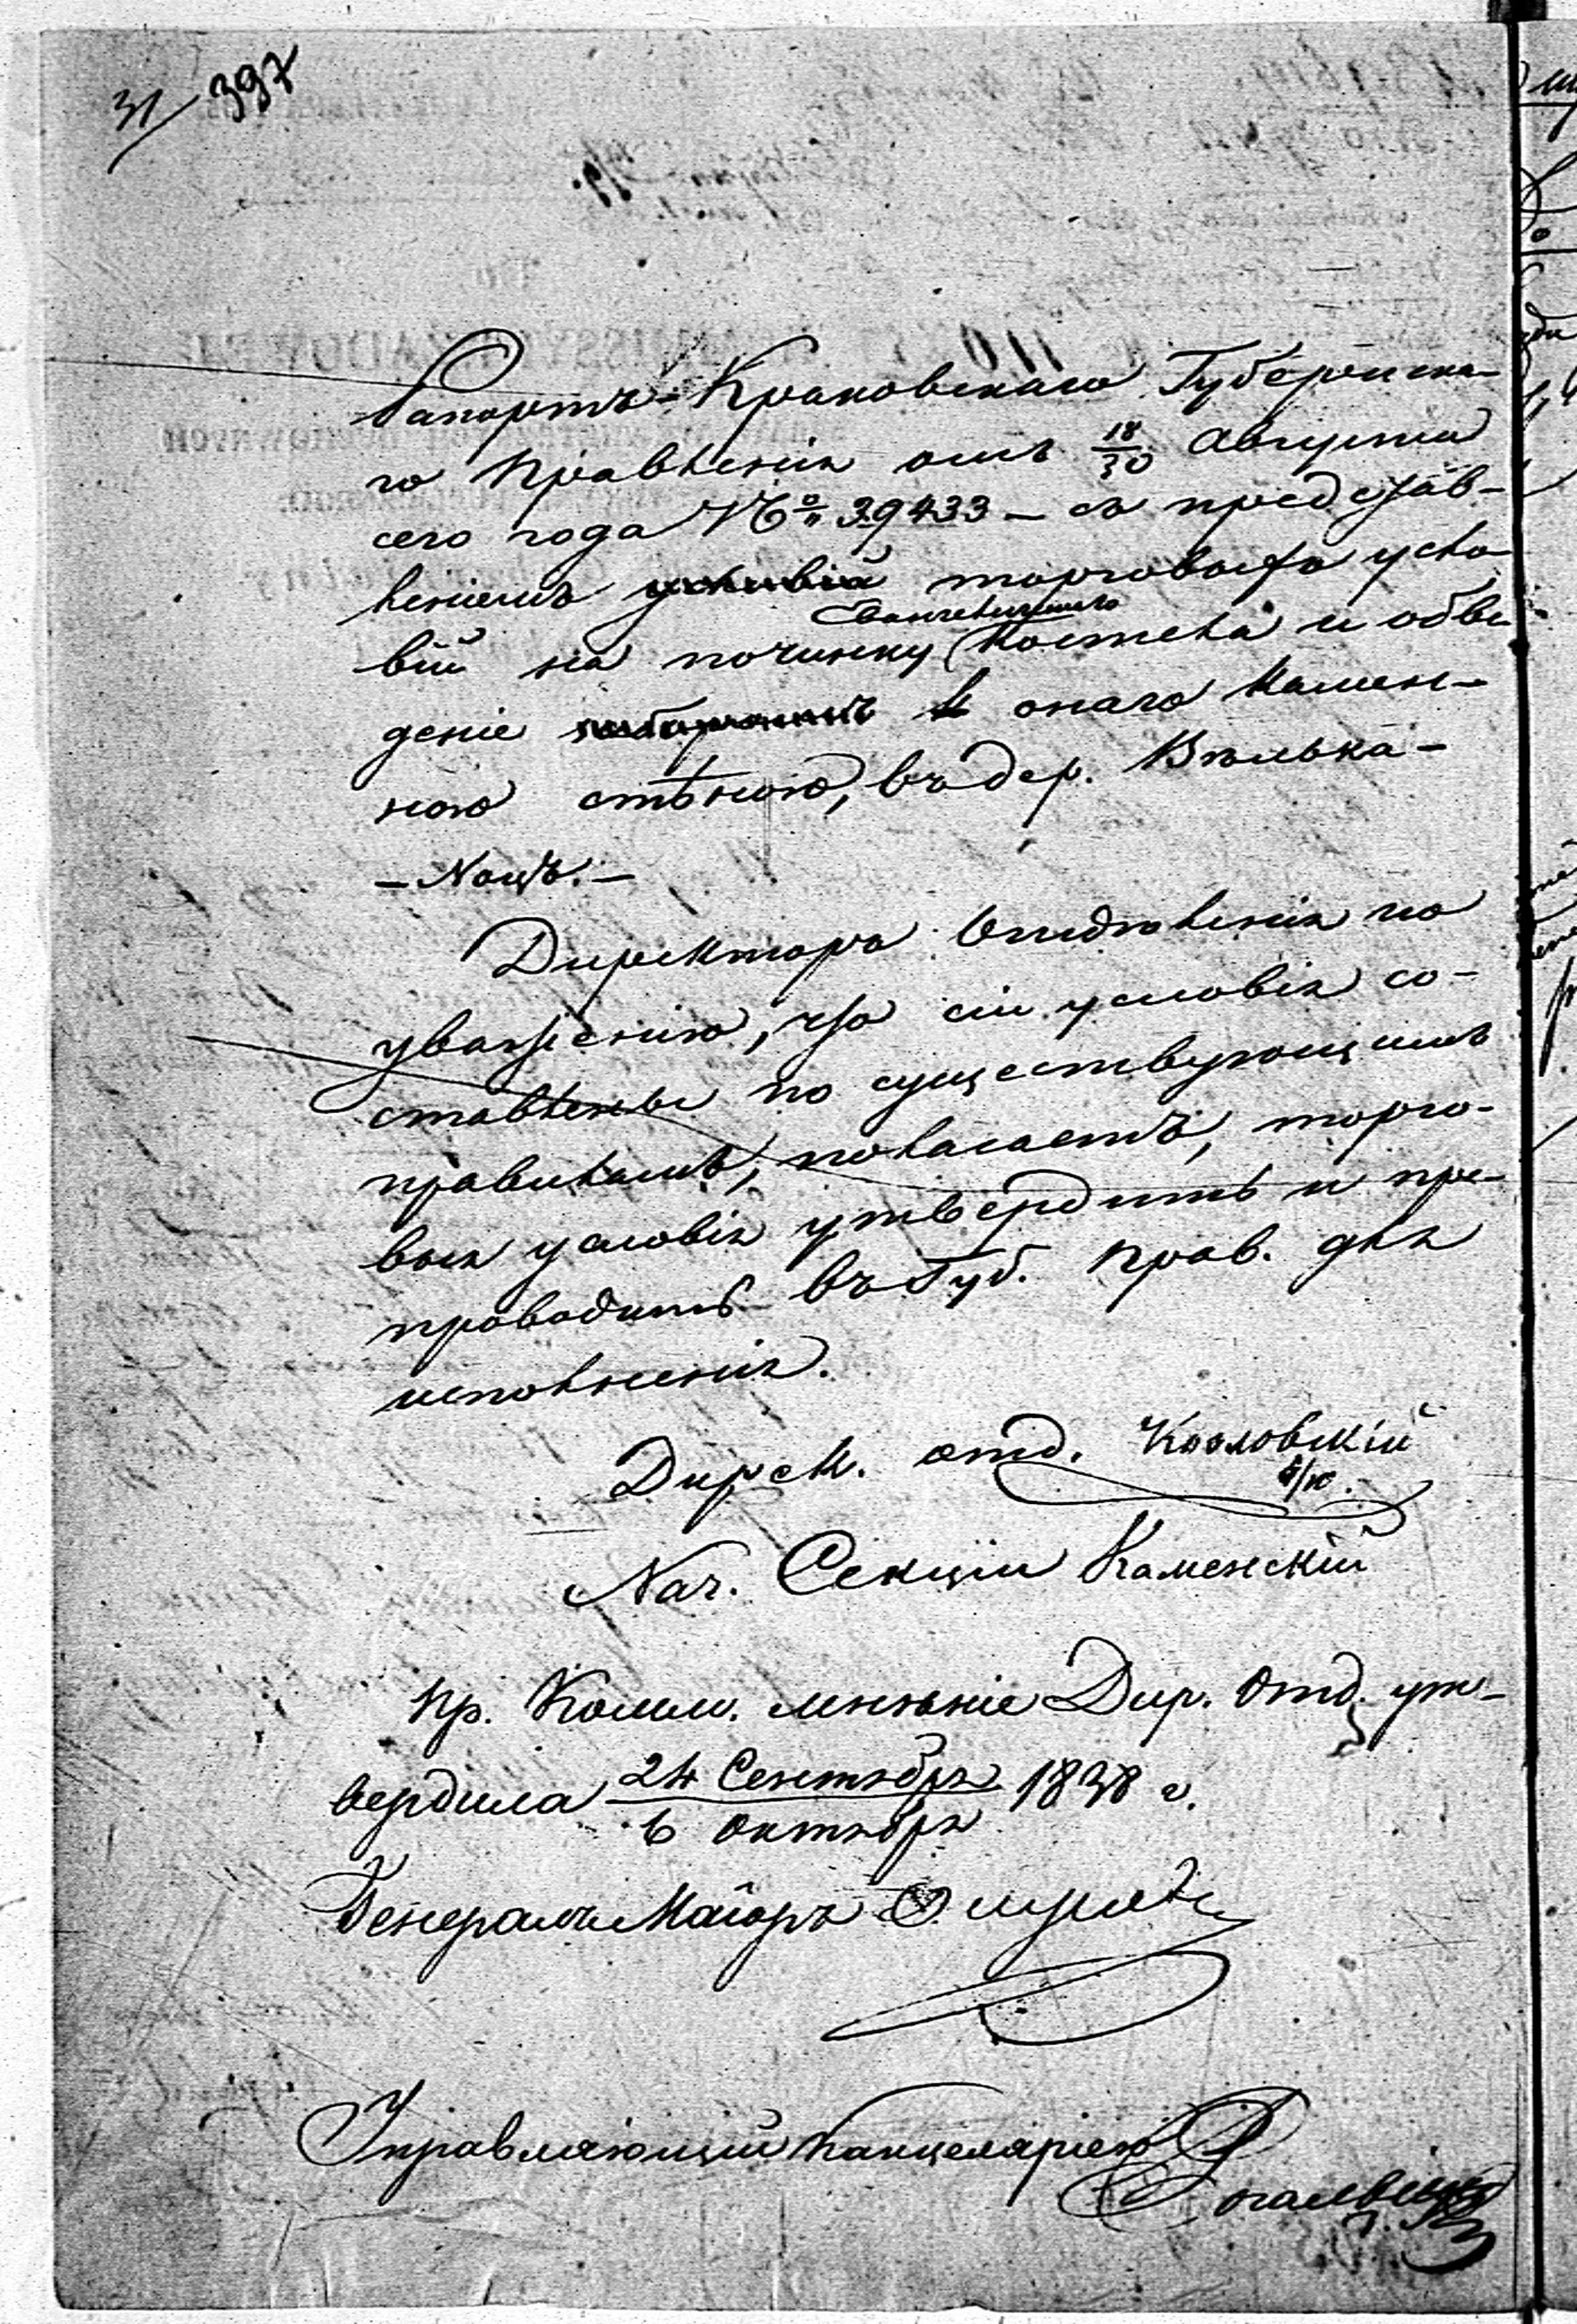 31/ 397
Рапортъ Краковскаго Губернска-
го Правленія отъ 18/30 Августа
сего года № 39433 – съ представ-
леніемъ условій торговыхъ усло-
вій на починку Евангелическаго Костела и обве-
деніе онаго камен-
ною стѣною, въ дер. Вѣлька-
– Ноцъ. –
Директоръ Отдѣленія по
уваженію, что сіи условія со-
ставлены по существующимъ
правиламъ, полагаетъ, торго-
выя условія утвердить и пре-
проводить въ Губ. Прав. для
исполненія.
Дирек. отд. Козловскій
Нач. Секціи Каменскій
Пр. Комм. мнѣніе Дир. Отд. ут-
вердила 24 Сентября / 6 Октября 1838 г.
Генералъ Маіоръ
Управляющій Канцеляріею